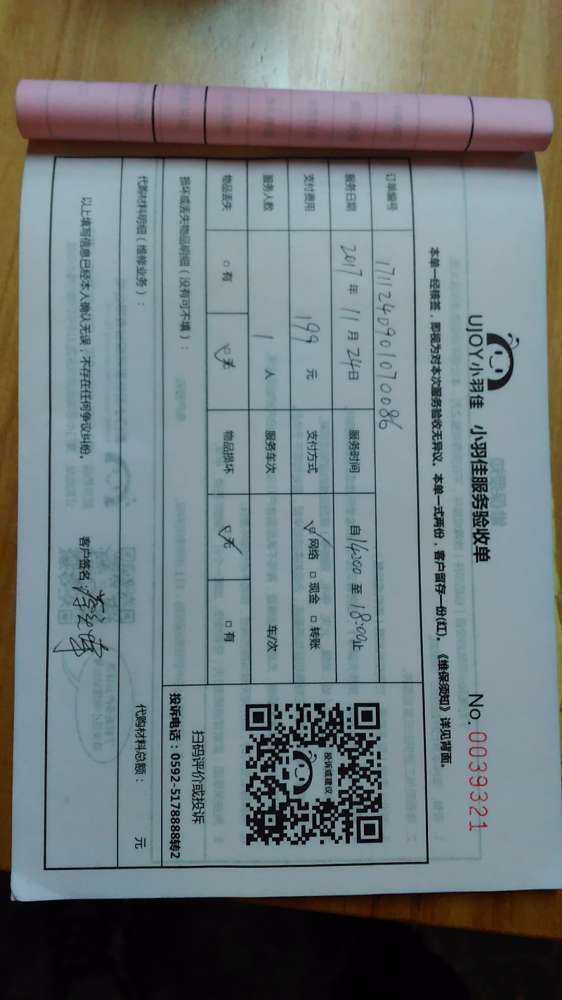 UJOY小羽佳 小羽佳服务验收单 No. 0039321
本单一经接签，即视为对本次服务验收无异议。本单一式两份，客户留存一份(红)。《维保须知》详见背面。
订单编号 1711240901070086
服务日期 2017 年 11 月 24 日 服务时间 自 14:00 至 18:00 止
支付费用 199 元 支付方式 ☑ 网络 □ 现金 □ 转账
服务人数 1 人 服务车次 车/次
物品丢失 □ 有 ☑ 无 物品损坏 ☑ 无 □ 有
投诉或建议
扫码评价或投诉
投诉电话：0592-5178888转2
损坏或丢失物品明细（没有可不填）：
代购材料明细（维修业务）： 代购材料总额： 元
以上填写信息已经本人确认无误，不存在任何争议纠纷。 客户签名：